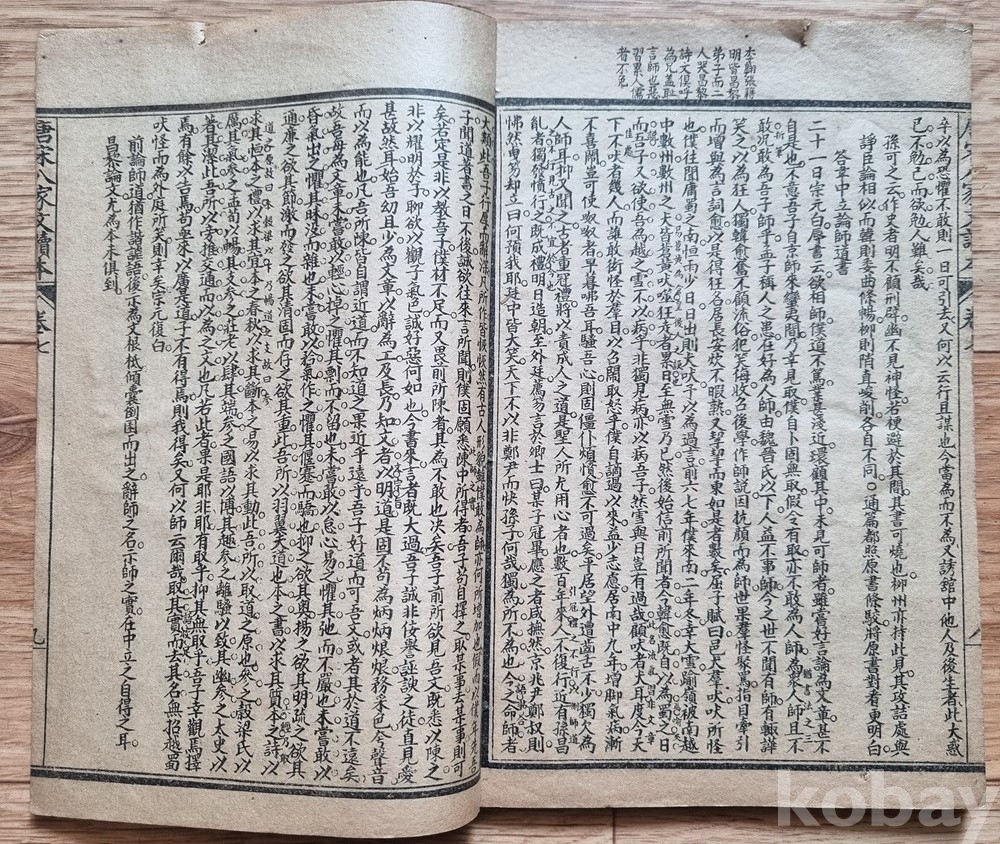 李翱張籍
明皆昌黎
弟子而二
人哭昌黎
詩文俱呼
為兄蓋恥
言師也惡
習累人儒
者不免
卒以為恐懼不敢則一日可引去又何以云行且謀也今當為而不為又誘館中他人及後生者此大惑
已不勉己而欲勉人難矣哉
孫可之云作史者明不顧刑辟幽不見神怪若梗避於其間其書可燒也柳州亦持此見其攻詰處與
諍臣論相似而韓則委曲條暢柳則陗直峻削各自不同。通篇都照原書條駁將原書對看更明白
答韋中立論師道書
二十一日宗元白辱書云欲相師僕道不篤業甚淺近環顧其中未見可師者雖嘗好言論為文章甚不
自是也不意吾子自京師來蠻夷間乃幸見取僕自卜固無取假令有取亦不敢為人師為衆人師且不
敢况敢為吾子師乎孟子稱人之患在好為人師由魏晉氏以下人益不事師今之世不聞有師有輒譁
笑之以為狂人獨韓愈奮不顧流俗犯笑侮收召後學作師說因抗顏而為師世果羣怪聚罵指目牽引
而增與為言詞愈以是得狂名居長安炊不暇熟又挈挈而東如是者數矣屈子賦曰邑犬羣吠吠所怪
也僕往聞庸蜀之南恒雨少日日出則犬吠予以為過言前六七年僕來南二年冬幸大雪踰嶺被南越
中數州數州之犬皆蒼黃吠噬狂走者累日至無雪乃已然後始信前所聞者今韓愈既自以為蜀之日
而吾子又欲使吾為越之雪不以病乎非獨見病亦以病吾子然雪與日豈有過哉顧吠者犬耳度今天
下不吠者幾人而誰敢衒怪於羣目以召鬧取怒乎僕自謫過以來益少志慮居南中九年增脚氣病漸
不喜鬧豈可使呶呶者早暮咈吾耳騷吾心則固僵仆煩憒愈不可過矣平居望外遭齒舌不少獨欠為
人師耳抑又聞之古者重冠禮將以責成人之道是聖人所尤用心者也數百年來人不復行近有孫昌
胤者獨發憤行之既成禮明日造朝至外廷薦笏言於卿士曰某子冠畢應之者咸憮然京兆尹鄭叔則
怫然曳笏却立曰何預我耶廷中皆大笑天下不以非鄭尹而快孫子何哉獨為所不為也今之命師者
大類此吾子行厚而辭深凡所作皆恢恢然有古人形貌雖僕敢為師亦何所增加也假而以僕年先吾
子聞道著書之日不後誠欲往來言所聞則僕固願悉陳中所得者吾子苟自擇之取某事去某事則可
矣若定是非以教吾子僕材不足而又畏前所陳者其為不敢也决矣吾子前所欲見吾文既悉以陳之
非以耀明於子聊欲以觀子氣色誠好惡何如也今書來言者既大過吾子誠非佞譽誣諛之徒直見愛
甚故然耳始吾幼且少為文章以辭為工及長乃知文者以明道是固不苟為炳炳烺烺務采色夸聲音
而以為能也凡吾所陳皆自謂近道而不知道之果近乎遠乎吾子好道而可吾文或者其於道不遠矣
故吾每為文章未嘗敢以輕心掉之懼其剽而不留也未嘗敢以怠心易之懼其弛而不嚴也未嘗敢以
昏氣出之懼其昧沒而雜也未嘗敢以矜氣作之懼其偃蹇而驕也抑之欲其奧揚之欲其明疏之欲其
通廉之欲其節激而發之欲其清固而存之欲其重此吾所以羽翼夫道也本之書以求其質本之詩以
求其恒本之禮以求其宜本之春秋以求其斷本之易以求其動此吾所以取道之原也參之穀梁氏以
厲其氣參之孟荀以暢其支參之莊老以肆其端參之國語以博其趣參之離騷以致其幽參之太史以
著其潔此吾所以旁推交通而以為之文也凡若此者果是耶非耶有取乎抑其無取乎吾子幸觀焉擇
焉有餘以告焉苟亟來以廣是道子不有得焉則我得矣又何以師云爾哉取其實而去其名無招越蜀
吠怪而為外廷所笑則幸矣宗元復白
前論師道猶作諧謔語後示為文根柢傾囊倒囷而出之辭師之名示師之實在中立之自得之耳
昌黎論文尤為本末俱到
唐宋八家文讀本 卷七 九
kobay